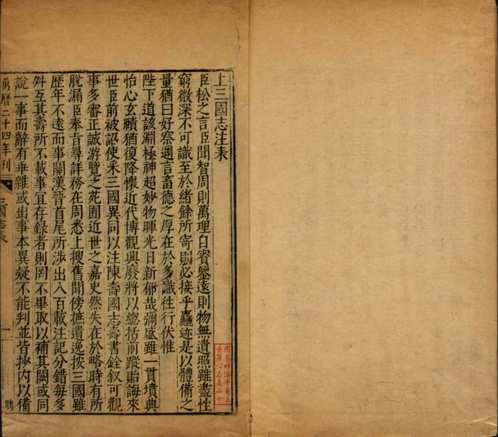 上三國志注表
臣松之言臣聞智周則萬理自賓鑒遠則物無遺照雖盡性
窮微深不可識至於緒餘所寄則必接乎麤迹是以體備之
量猶曰好察邇言畜德之厚在於多識往行伏惟
陛下道該淵極神超妙物暉光日新郁哉彌盛雖一貫墳典
怡心玄賾猶復降懷近代博觀興廢將以總括前蹤貽誨來
世臣前被詔使采三國異同以注陳壽國志壽書銓敘可觀
事多審正誠游覽之苑囿近世之嘉史然失在於略時有所
脫漏臣奉旨尋詳務在周悉上搜舊聞傍摭遺逸按三國雖
歷年不遠而事關漢晉首尾所涉出入百載注記分錯每多
舛互其壽所不載事宜存錄者則罔不畢取以補其闕或同
說一事而辭有乖雜或出事本異疑不能判並皆抄內以備
萬曆二十四年刊
三國志表
一